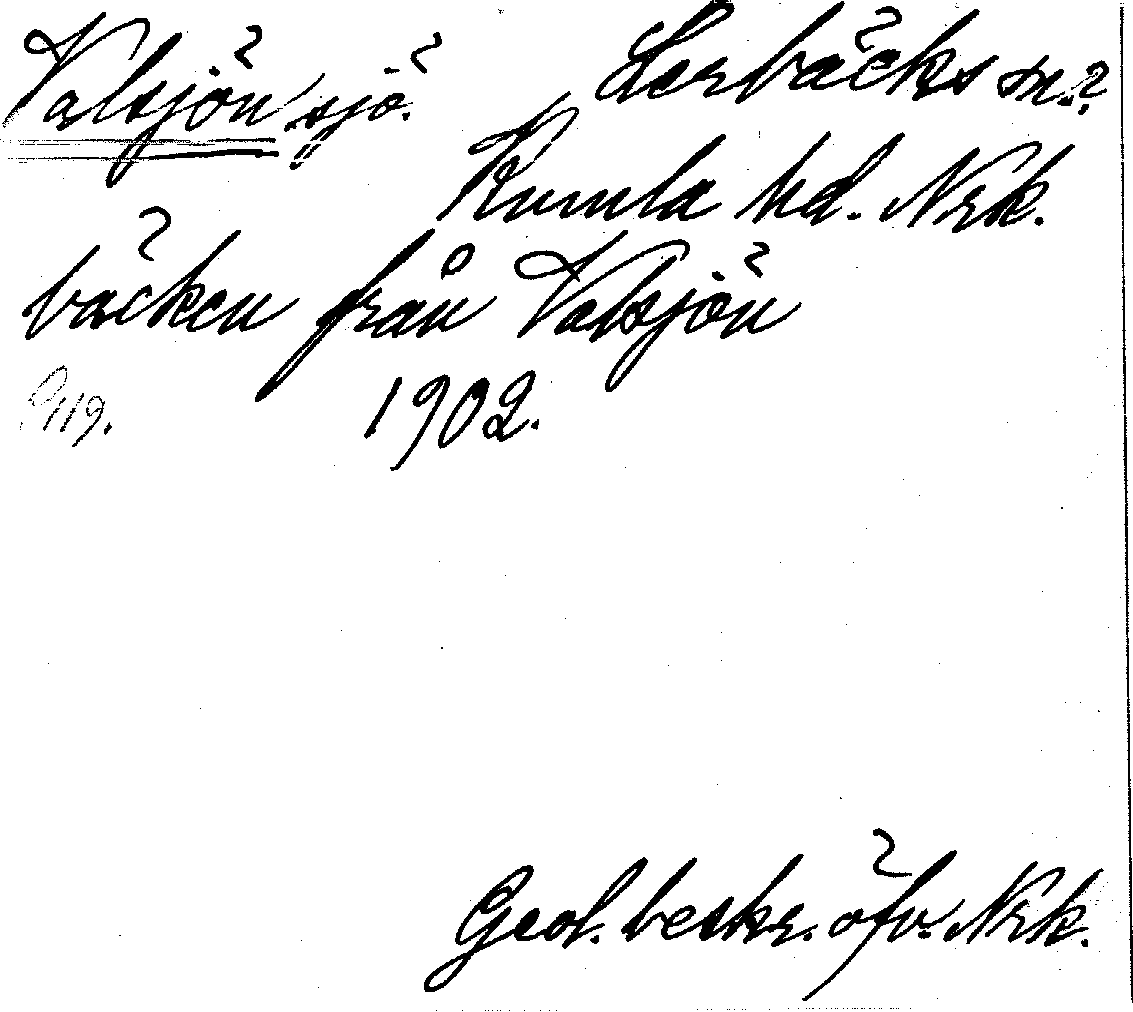 Valsjön, sjö. Lerbäcks sn.?
Kumla hd. Nrk.
bäcken från Valsjön
119. 1902.
Geol. beskr. öfv. Nrk.